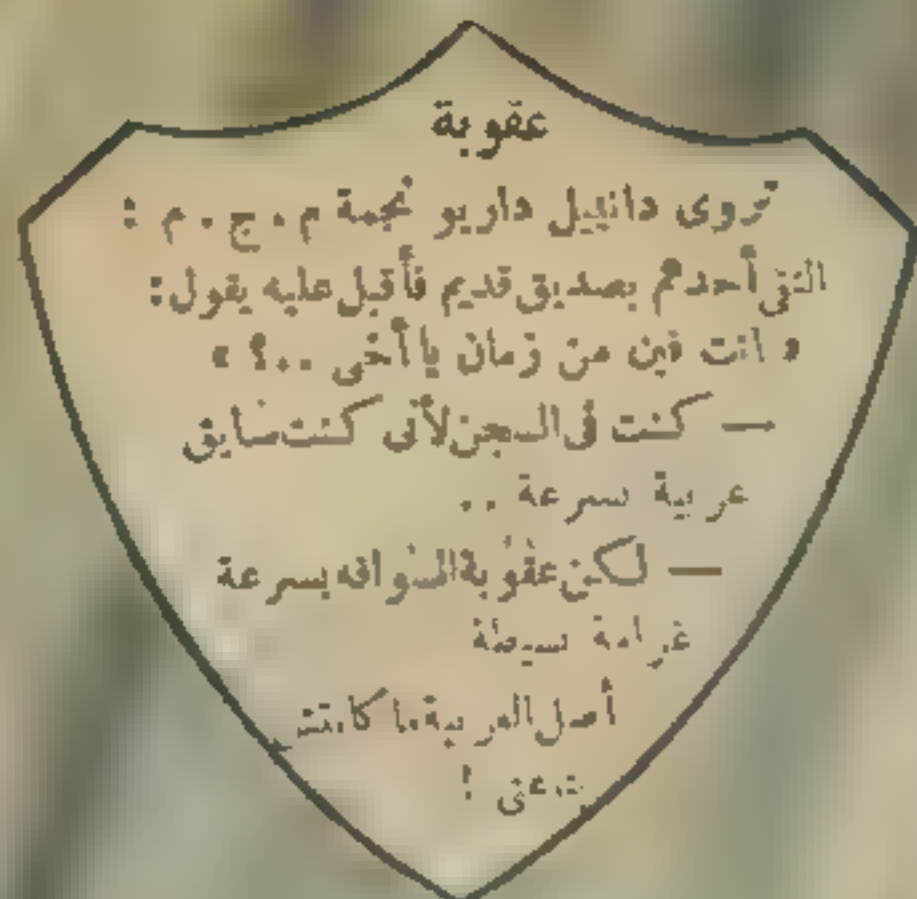 عقوبة
تروى دانييل داريو نجمة م . ج . م :
التقى أحدهم بصديق قديم فأقبل عليه يقول :
« انت فين من زمان يا أخى ..؟ »
— كنت فى السجن لأنى كنت سايق
عربية بسرعة ..
— لكن عقوبة السواقه بسرعة
غرامة بسيطة
أصل العربية ما كانتش
بتاعتى !